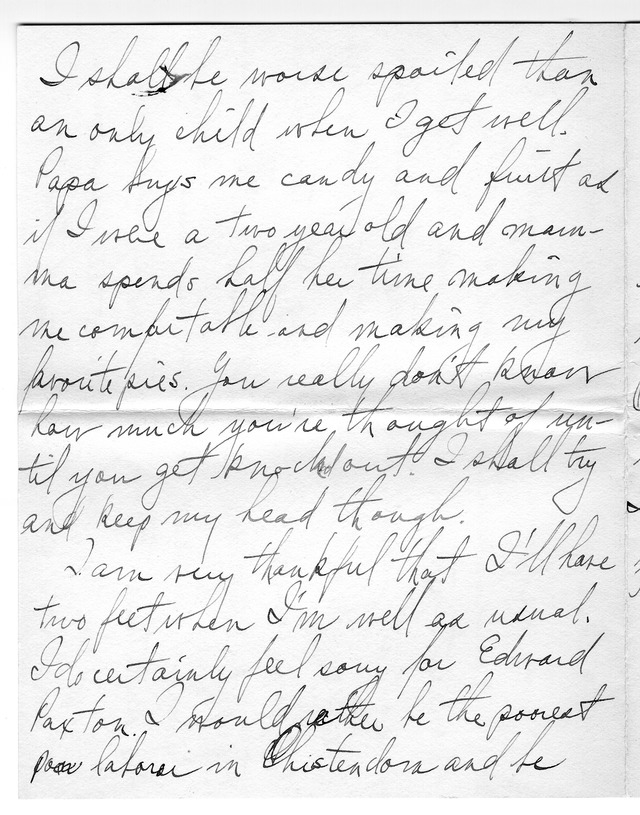 I shall be worse spoiled than
an only child when I get well.
Papa buys me candy and fruit as
if I were a two year old and mam-
ma spends half her time making
me comfortable and making my
favorite pies. You really don't know
how much you're thought of un-
til you get knocked out. I shall try
and keep my head though.
I am very thankful that I'll have
two feet when I'm well as usual.
I do certainly feel sorry for Edward
Paxton. I would rather be the poorest
poor laborer in Christendom and be